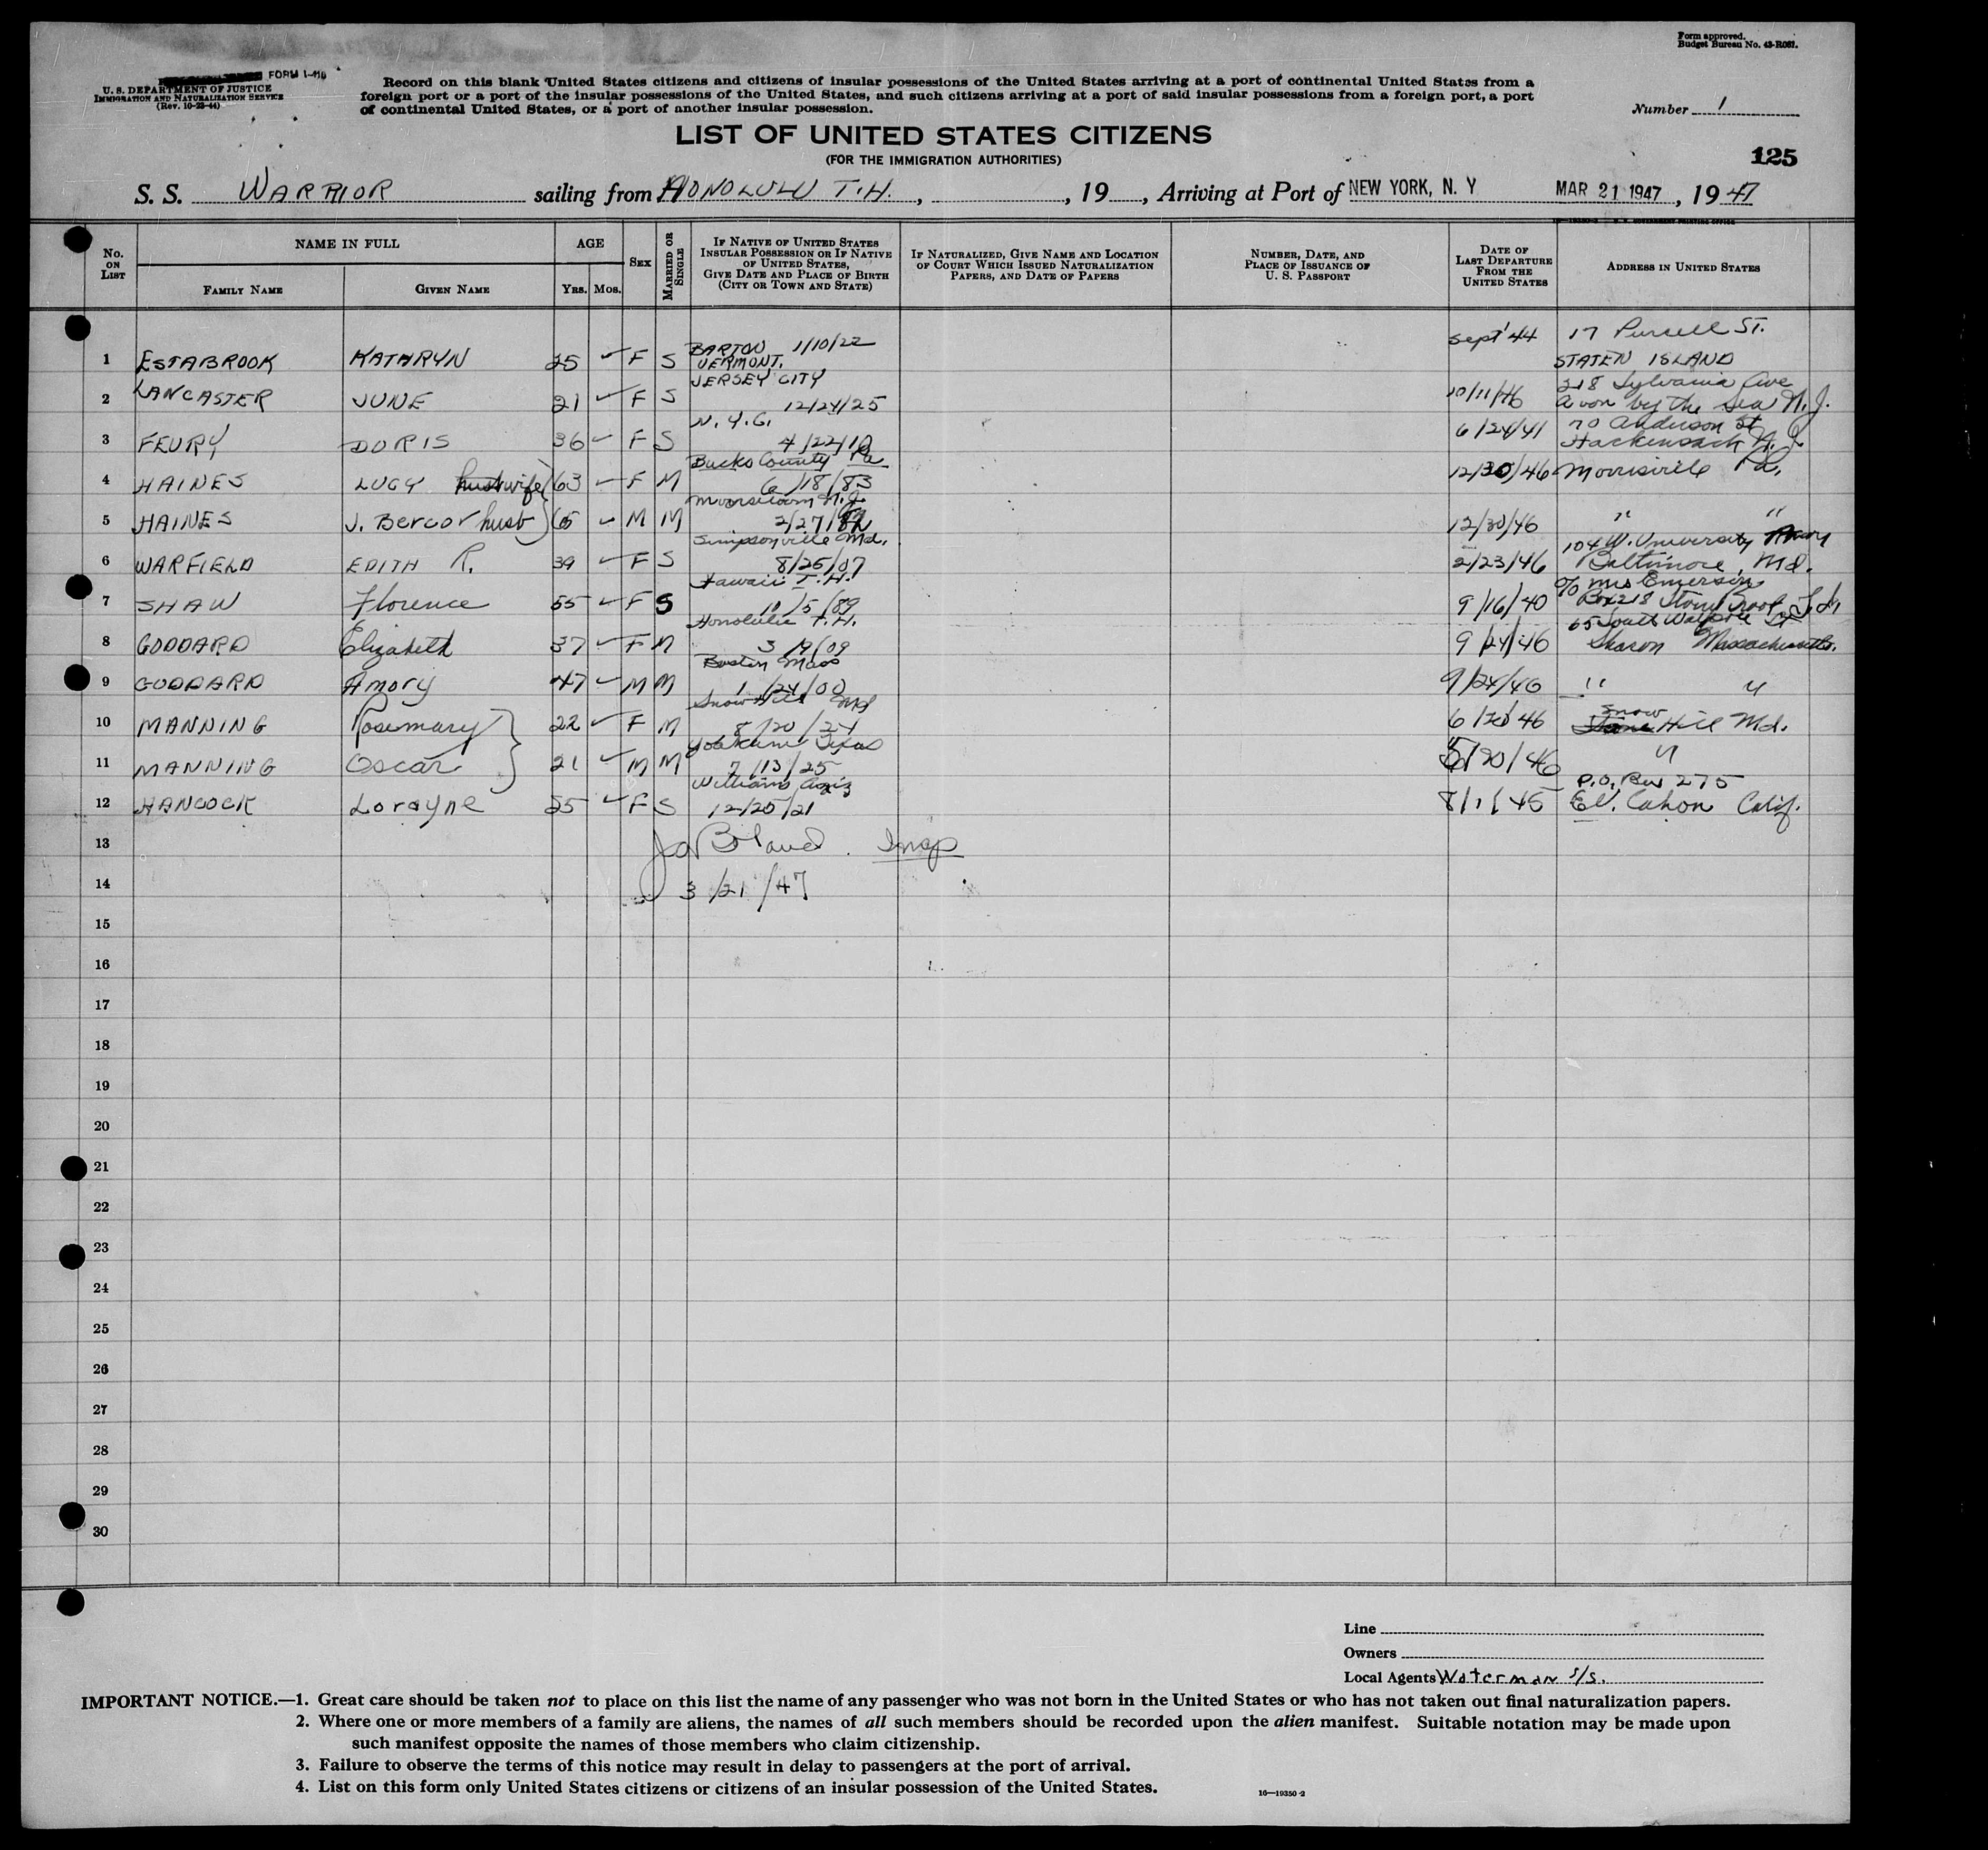 Form approved.
Budget Bureau No. 43-R081.
FORM I-416
U. S. DEPARTMENT OF JUSTICE
IMMIGRATION AND NATURALIZATION SERVICE
(Rev. 10-23-44)
Record on this blank United States citizens and citizens of insular possessions of the United States arriving at a port of continental United States from a
foreign port or a port of the insular possessions of the United States, and such citizens arriving at a port of said insular possessions from a foreign port, a port
of continental United States, or a port of another insular possession.
Number 1
LIST OF UNITED STATES CITIZENS
(FOR THE IMMIGRATION AUTHORITIES)
125
S. S. WARRIOR sailing from HONOLULU T.H. , , 19 , Arriving at Port of NEW YORK, N. Y MAR 21 1947 , 19 47
No. ON LIST
NAME IN FULL
FAMILY NAME
GIVEN NAME
AGE
YRS. MOS.
SEX
MARRIED OR SINGLE
IF NATIVE OF UNITED STATES
INSULAR POSSESSION OR IF NATIVE
OF UNITED STATES,
GIVE DATE AND PLACE OF BIRTH
(CITY OR TOWN AND STATE)
IF NATURALIZED, GIVE NAME AND LOCATION
OF COURT WHICH ISSUED NATURALIZATION
PAPERS, AND DATE OF PAPERS
NUMBER, DATE, AND
PLACE OF ISSUANCE OF
U. S. PASSPORT
DATE OF
LAST DEPARTURE
FROM THE
UNITED STATES
ADDRESS IN UNITED STATES
1 ESTABROOK KATHRYN 25 ✓ F S BARTON 1/10/22 VERMONT. Sept '44 17 Purcell ST. STATEN ISLAND
2 LANCASTER JUNE 21 ✓ F S JERSEY CITY 12/24/25 10/11/46 218 Sylvania Ave Avon by the Sea N.J.
3 FEURY DORIS 36 ✓ F S N.Y.C. 4/22/10 6/24/41 70 Anderson St Hackensack N.J.
4 HAINES LUCY wife 63 ✓ F M Bucks County Pa 6/18/83 12/30/46 Morrisville Pa.
5 HAINES J. husb 65 ✓ M M Moorestown N.J. 2/27/82 12/30/46 " "
6 WARFIELD EDITH R. 39 ✓ F S Simpsonville Md. 8/25/07 2/23/46 104 W. University Baltimore, Md.
7 SHAW Florence 55 ✓ F S Hawaii T.H. /5/89 9/16/40 c/o Mrs Emerson Box 218 Stony Brook L.I.
8 GODDARD Elizabeth 37 ✓ F M Honolulu T.H. 3/9/09 9/24/46 65 South Walpole St Sharon Massachusetts.
9 GODDARD Amory 47 ✓ M M Boston Mass 1/24/00 9/24/46 " "
10 MANNING Rosemary 22 ✓ F M Snow Hill Md 8/20/24 6/ /46 Snow Hill Md.
11 MANNING Oscar 21 ✓ M M Yoakum Texas 7/13/25 5/20/46 "
12 HANCOCK Lorayne 25 ✓ F S Williams Ariz 12/25/21 8/1/45 P.O. Box 275 El. Cahon Calif.
13 Insp
14 3/21/47
15
16
17
18
19
20
21
22
23
24
25
26
27
28
29
30
Line
Owners
Local Agents Waterman S/S.
IMPORTANT NOTICE.—1. Great care should be taken not to place on this list the name of any passenger who was not born in the United States or who has not taken out final naturalization papers.
2. Where one or more members of a family are aliens, the names of all such members should be recorded upon the alien manifest. Suitable notation may be made upon
such manifest opposite the names of those members who claim citizenship.
3. Failure to observe the terms of this notice may result in delay to passengers at the port of arrival.
4. List on this form only United States citizens or citizens of an insular possession of the United States.
16—19350-2